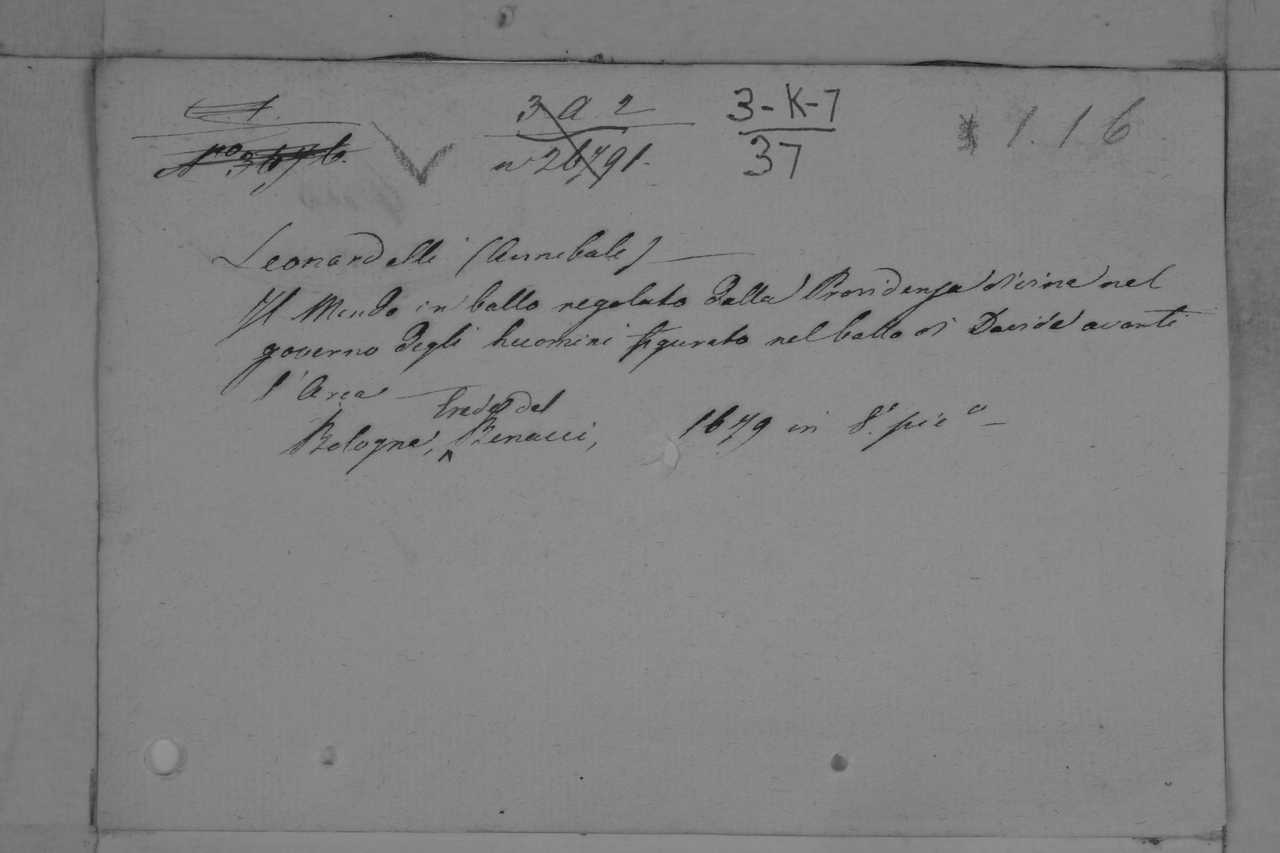 3 A 2 3-K-7 1.1.6
nº 26791. 37
Nº 3676.
Leonardelli (Annibale)
Il Mondo in ballo regolato dalla Providenza divina nel
governo degli huomini figurato nel ballo di Davide avanti
l'Arca
Erede del
Bologna, Benacci, 1679 in 8º picº